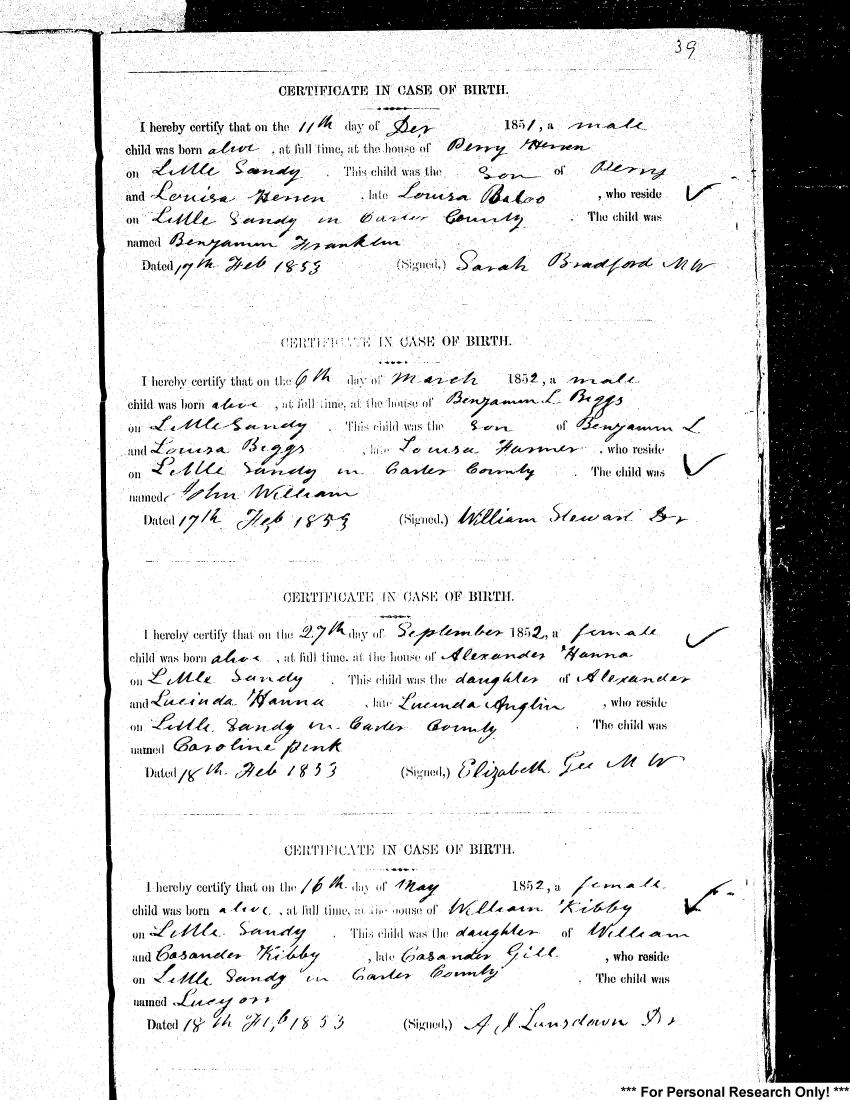 39
CERTIFICATE IN CASE OF BIRTH.
I hereby certify that on the 11th day of Dec 1851, a male
child was born alive, at full time, at the house of Perry Herren
on Little Sandy. This child was the Son of Perry
and Louisa Herren, late Louisa, who reside
on Little Sandy in Carter County. The child was
named Benjamin Franklin
Dated 17th Feb 1853 (Signed,) Sarah Bradford M W
CERTIFICATE IN CASE OF BIRTH.
I hereby certify that on the 6th day of March 1852, a male
child was born alive, at full time, at the house of Benjamin L Biggs
on Little Sandy. This child was the Son of Benjamin L
and Louisa Biggs, late Louisa Farmer, who reside
on Little Sandy in Carter County. The child was
named John William
Dated 17th Feb 1853 (Signed,) William Stewart Dr
CERTIFICATE IN CASE OF BIRTH.
I hereby certify that on the 27th day of September 1852, a female
child was born alive, at full time, at the house of Alexander Hanna
on Little Sandy. This child was the daughter of Alexander
and Lucinda Hanna, late Lucinda Anglin, who reside
on Little Sandy in Carter County. The child was
named Caroline pink
Dated 18th Feb 1853 (Signed,) Elizabeth Gee M W
CERTIFICATE IN CASE OF BIRTH.
I hereby certify that on the 16th day of May 1852, a female
child was born alive, at full time, at the house of William Kibby
on Little Sandy. This child was the daughter of William
and Casander Kibby, late Casander Gill, who reside
on Little Sandy in Carter County. The child was
named Lucyorr
Dated 18th Feb 1853 (Signed,) A J Lansdown Dr
*** For Personal Research Only! ***